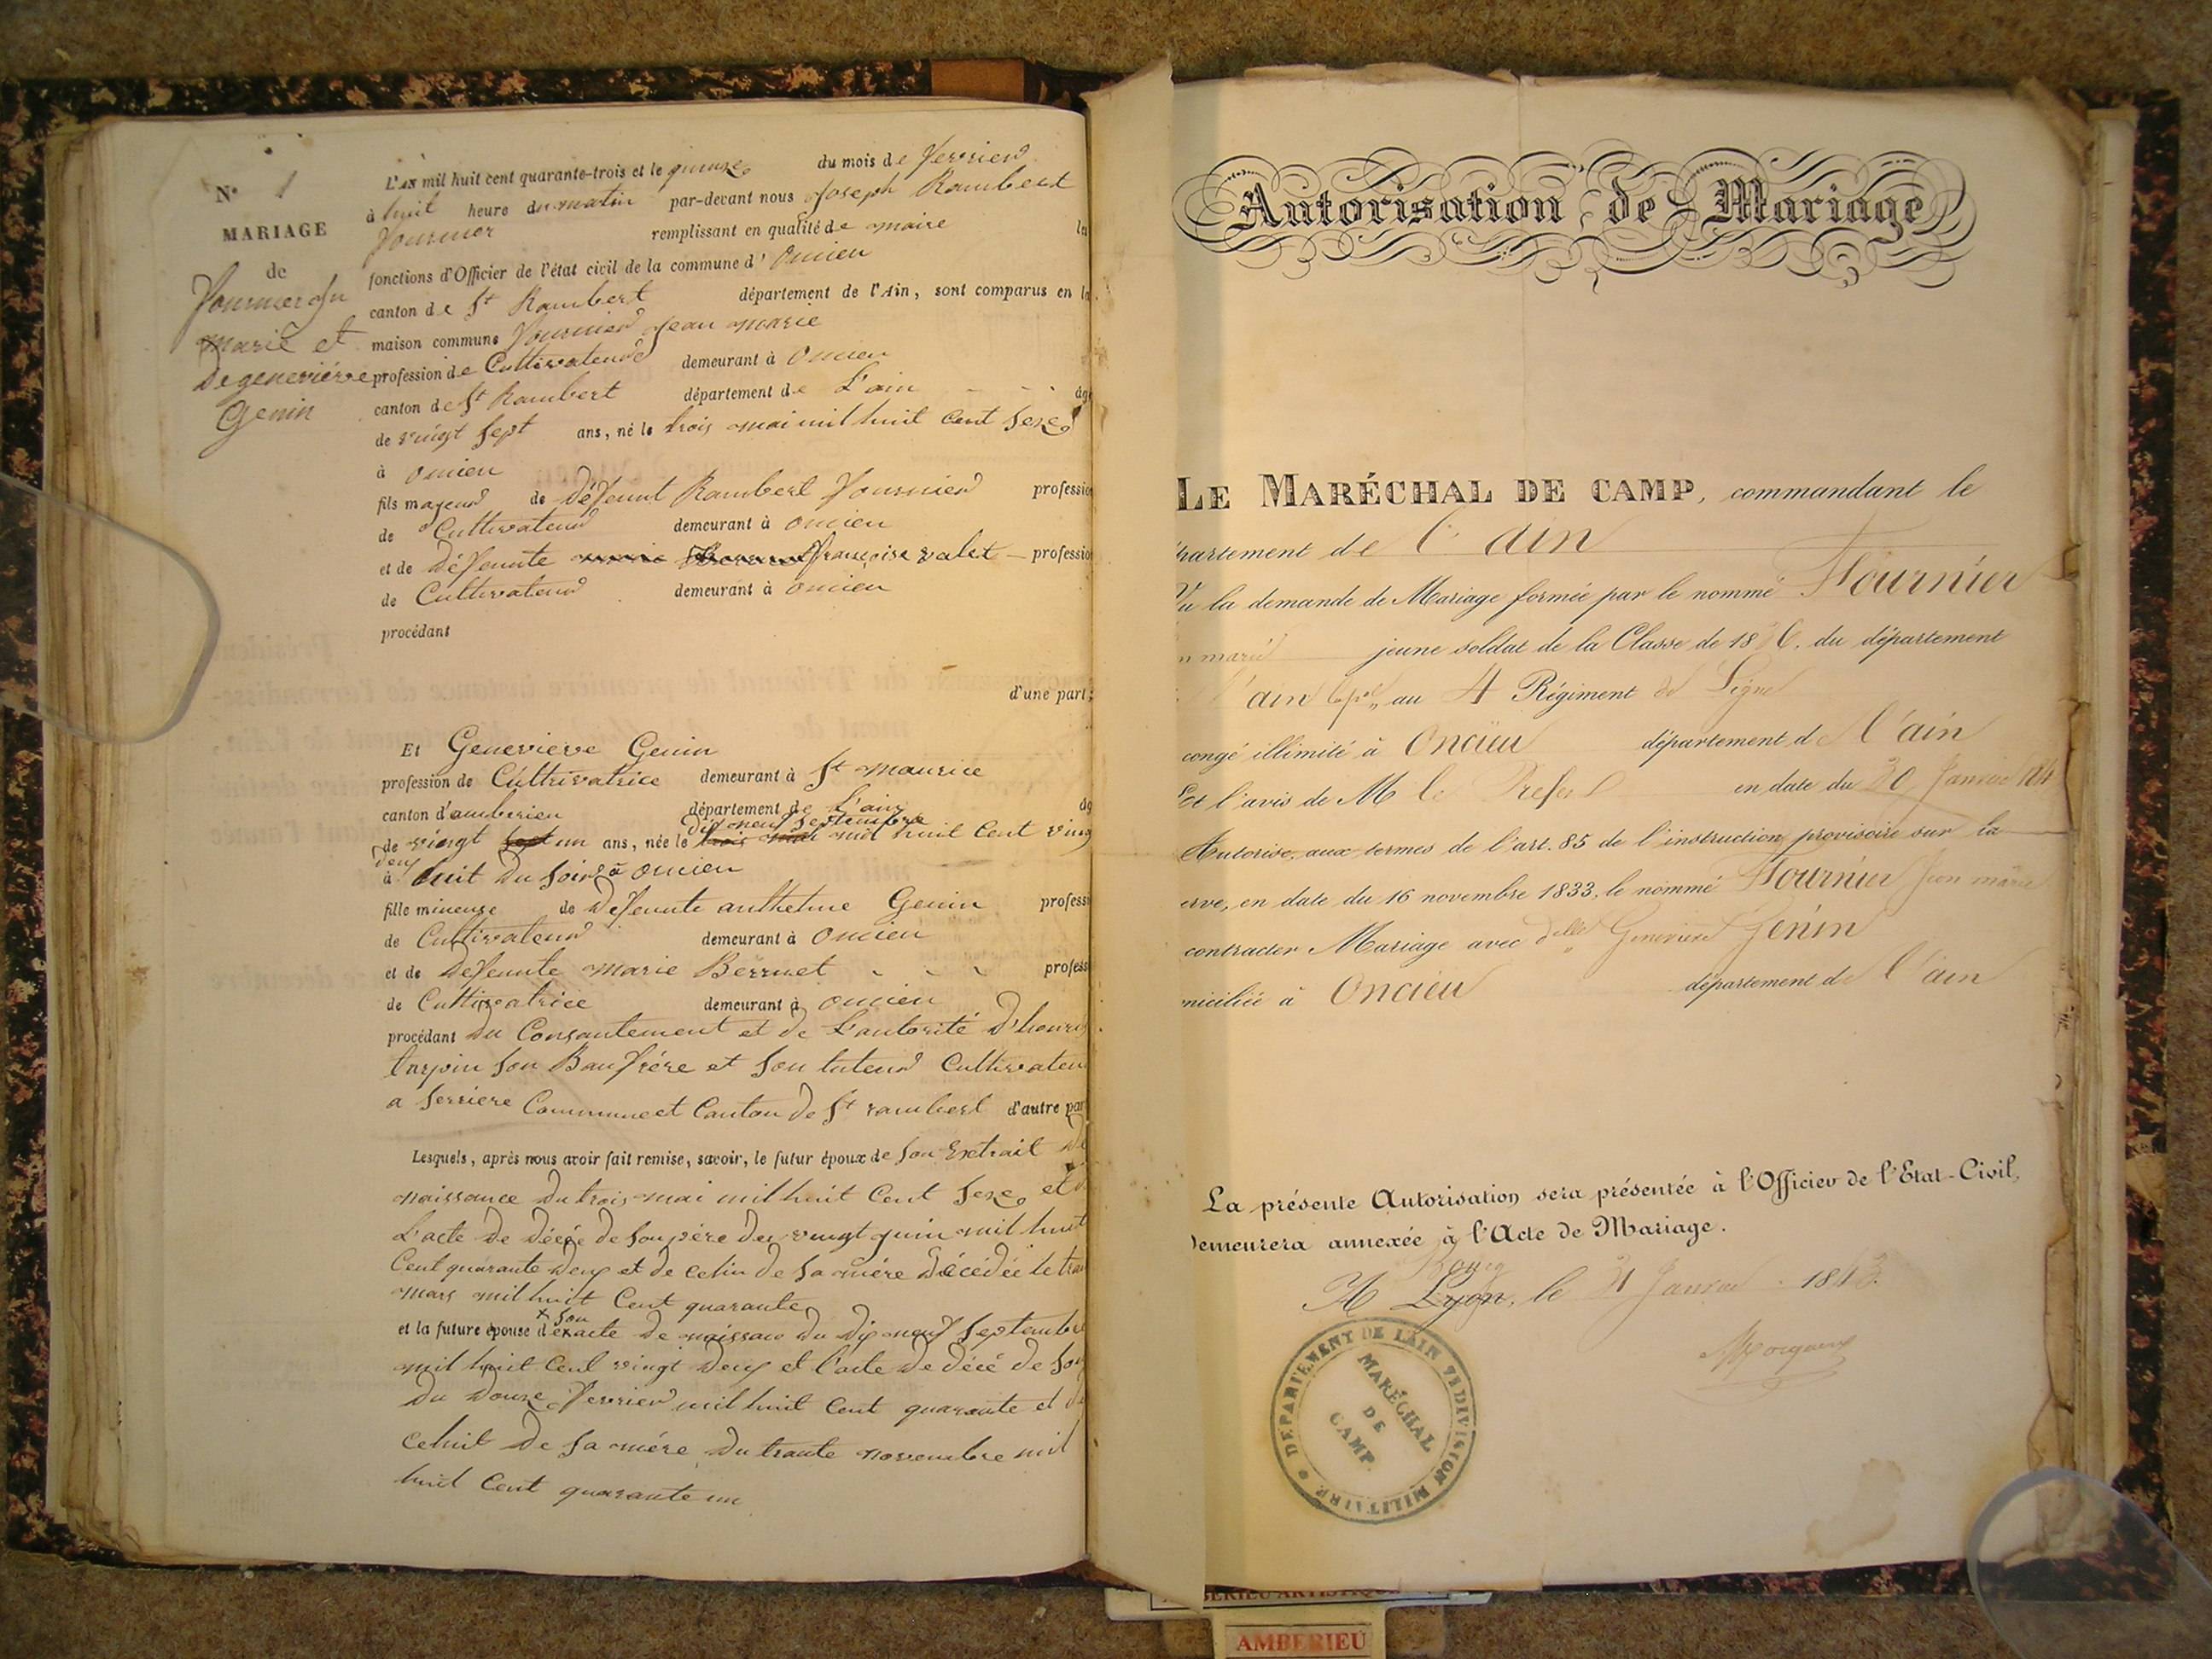 N° 1
MARIAGE
de
Fournier Jn
marie et
De geneviéve
Genin
L'an mil huit cent quarante-trois et le quinze du mois de Ferrier
à huit heure du matin par-devant nous Joseph Rambert
Fournier remplissant en qualité de maire les
fonctions d'Officier de l'état civil de la commune d' Oncieu
canton de St Rambert département de l'Ain, sont comparus en la
maison commune Fournier Jean marie
profession de Cultivateur demeurant à Oncieu
canton de St Rambert département de L'ain âgé
de vingt sept ans, né le trois mai mil huit cent seze
à oncieu
fils majeur de Défeunt Rambert Fournier professio
de Cultivateur demeurant à oncieu
et de Défeunte françoise valet professio
de Cultivateur demeurant à oncieu
procédant
d'une part;
Et Genevieve Genin
profession de Cultrivatrice demeurant à St maurice
canton d'amberieu département de L'ain âg
dix neuf septembre
de vingt un ans, née le mil huit cent ving
deux
à huit du soir à oncieu
fille mineuse de Defeunte anthelme Genin profess
de Cultivateur demeurant à oncieu
et de Defeunte marie Berrnet profess
de Cultivatrice demeurant à oncieu
procédant du Consantement et de L'autorité D'henri
son Baufrére et son tuteur Cultivateu
a serriere Commune et Canton de St rambert d'autre par
Lesquels, après nous avoir fait remise, savoir, le futur époux de son Extrait de
naissance du trois mai mil huit Cent seze et
L'acte de décée de son pére du vingt juin mil huit
Cent quarante deux et de celui de sa mére Décédée le
mars mil huit Cent quarante
+ son
et la future épouse d'exacte de naissance du dix neuf septembre
mil huit cent vingt deux et l'acte de décé de son
du douze Ferrier mil huit Cent quarante et de
celuit de sa mére du trante novembre mil
huit Cent quarante un
Autorisation de Mariage
LE MARÉCHAL DE CAMP, commandant le
partement de l'ain
Vu la demande de Mariage formée par le nommé Fournier
n marie jeune soldat de la Classe de 1836. du département
l'ain au 4 Régiment de Ligne
congé illimité à Oncieu département de l'ain
Et l'avis de M le Prefet en date du 30 Janvier 184
Autorise, aux termes de l'art. 85 de l'instruction provisoire sur la
erve, en date du 16 novembre 1833, le nommé Fournier Jean marie
contracter Mariage avec delle Genevieve Jenin
miciliée à Oncieu département de l'ain
La présente Autorisation sera présentée à l'Officier de l'Etat-Civil,
Demeurera annexée à l'Acte de Mariage.
Bourg
A Lyon, le 31 Janvier 1843.
DEPARTEMENT DE L'AIN 7E DIVISION MILITAIRE
MARÉCHAL
DE
CAMP
AMBERIEU